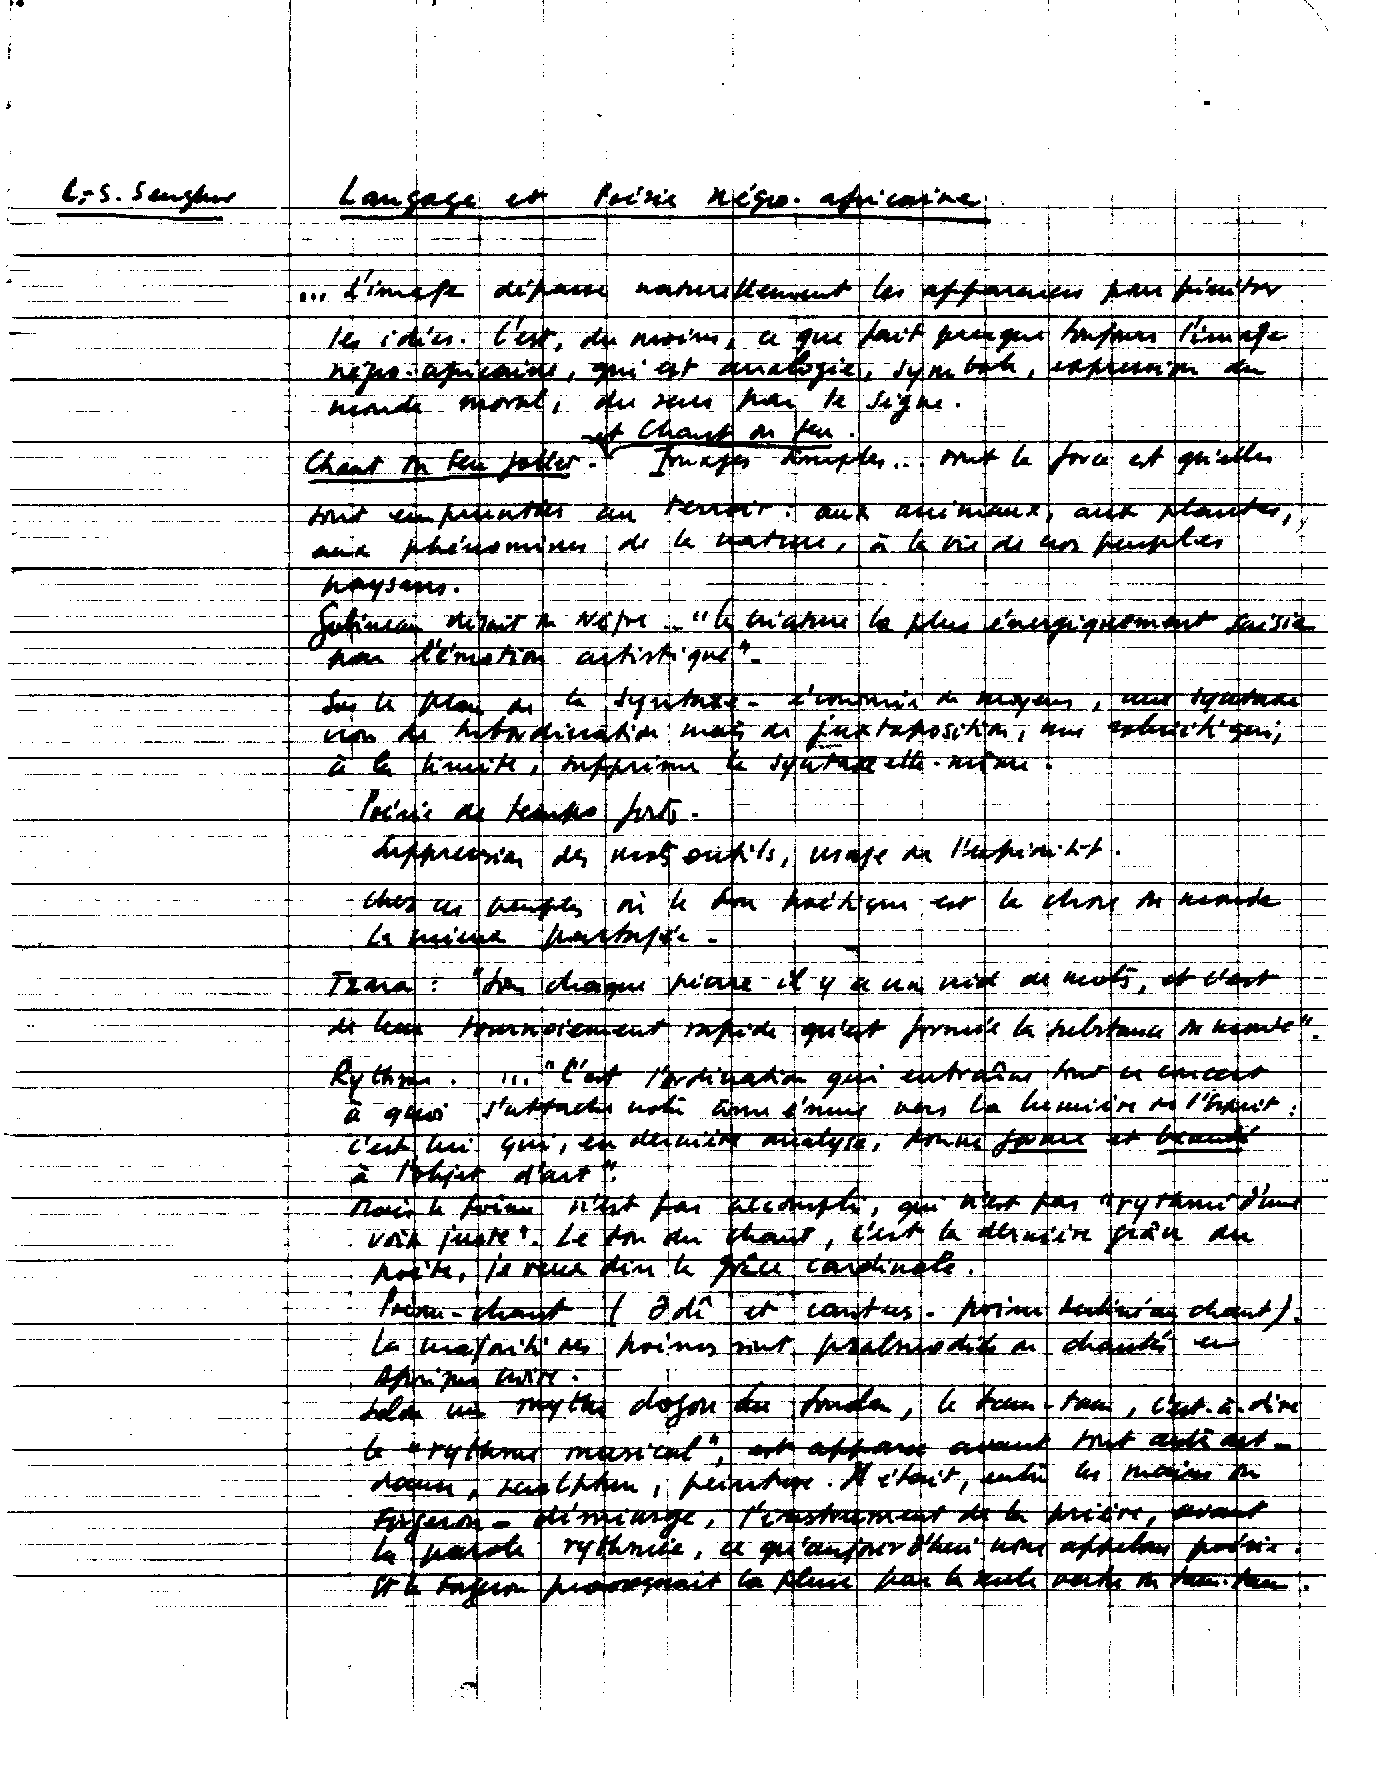 L.-S. Senghor
Langage et Poésie négro-africaine
... L'image dépasse naturellement les apparences pour pénétrer
les idées. C'est, du moins, ce que fait presque toujours l'image
négro-africaine, qui est analogie, symbole, expression du
monde moral, du sens par le signe.
et Chant du feu.
Chant du Feu follet. Images simples... dont la force est qu'elles
sont empruntées au terroir : aux animaux, aux plantes,
aux phénomènes de la nature, à la vie de nos peuples
paysans.
Gobineau disait du Nègre - "la créature la plus énergiquement saisie
par l'émotion artistique".
Sur le plan de la syntaxe - économie de moyens, une syntaxe
non de subordination mais de juxtaposition, une qui,
à la limite, supprime la syntaxe elle-même.
Poésie de temps forts.
Suppression des mots outils, usage de l'infinitif.
Chez ces peuples où le don poétique est la chose du monde
la mieux partagée.
Tzara : "sous chaque pierre il y a un nid de mots, et c'est
de leur tournoiement rapide qu'est formée la substance du monde".
Rythme. ... "C'est l'ordination qui entraîne tout ce concert
à quoi s'attache notre âme émue vers la lumière de l'Esprit :
c'est lui qui, en dernière analyse, donne forme et beauté
à l'objet d'art".
Mais le poème n'est pas accompli, qui n'est pas "rythmé d'une
voix juste". Le don du chant, c'est la dernière grâce du
poète, je veux dire la grâce cardinale.
Poème-chant ( ᾠδή et cantus - poème destiné au chant).
La majorité des poèmes sont psalmodiés ou chantés en
Afrique noire.
Selon un mythe dogon du Soudan, le tam-tam, c'est-à-dire
le "rythme musical", est apparu avant tout autre art -
danse, sculpture, peinture. Il était, entre les mains du
Forgeron-démiurge, l'instrument de la prière, avant
la parole rythmée, ce qu'aujourd'hui nous appelons poésie.
Et le Forgeron provoquait la pluie par la seule vertu du tam-tam.